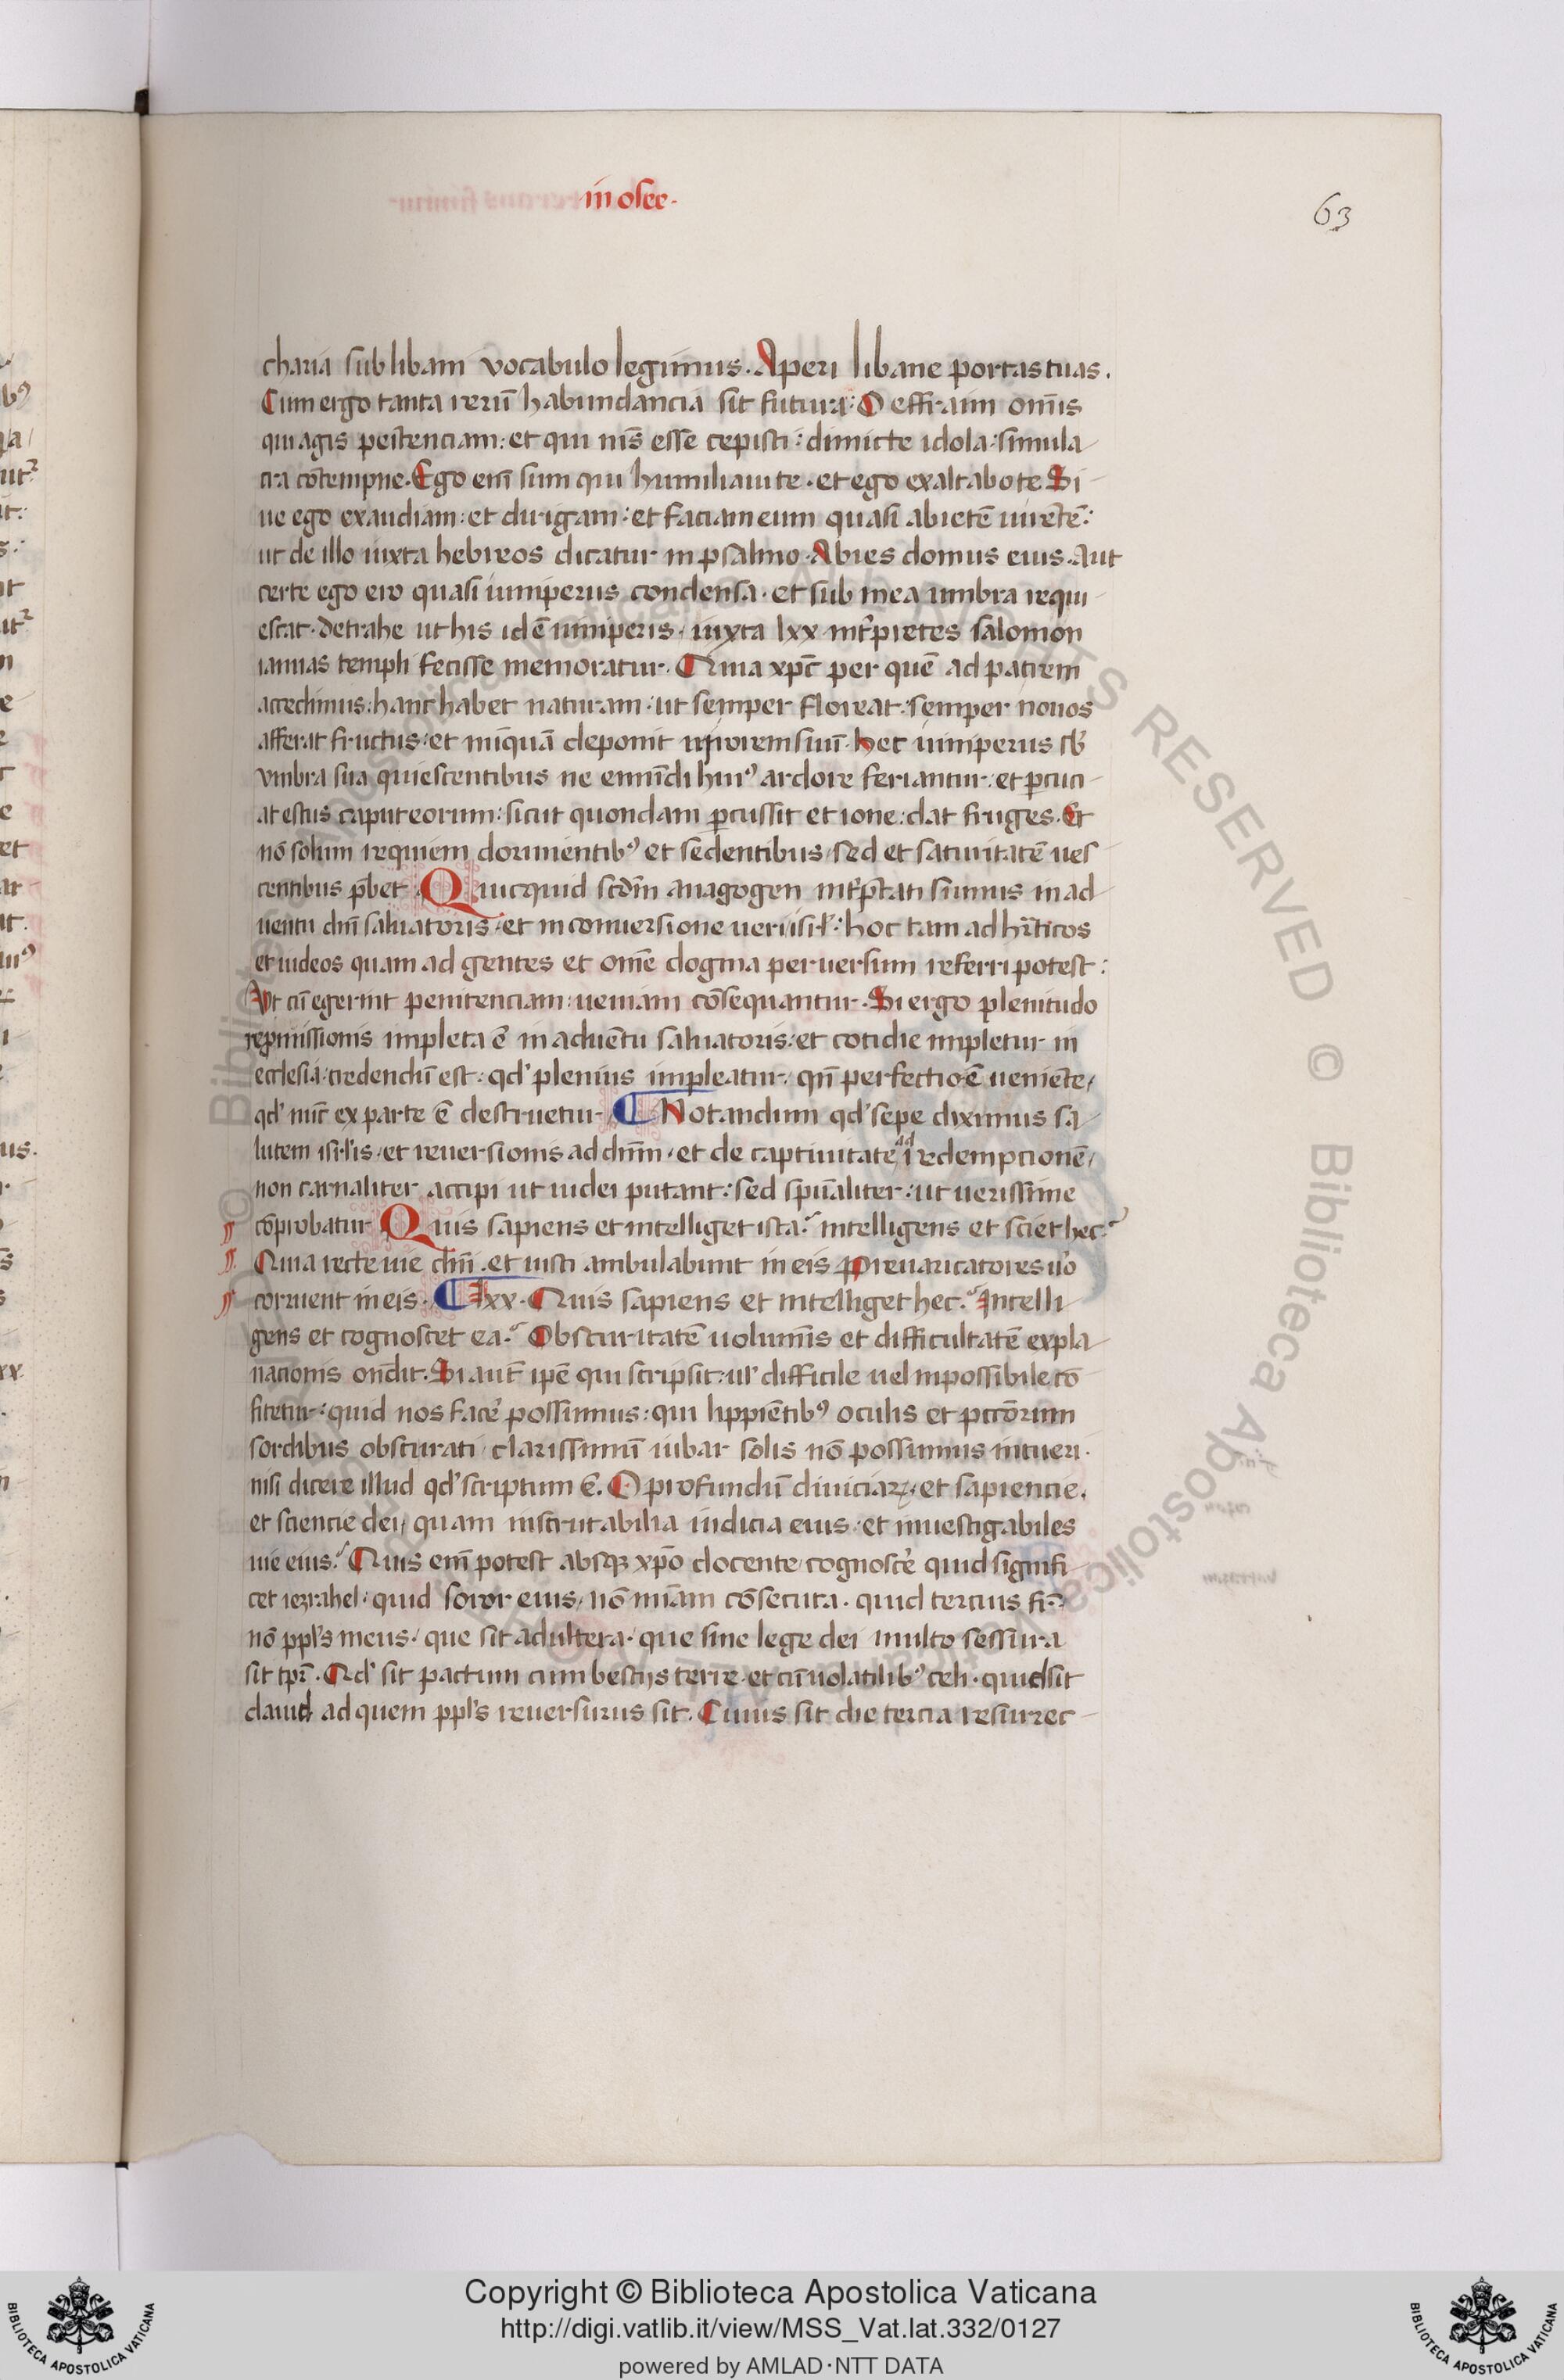 in osee.
63
charia sub libani vocabulo legimus. Aperi libane portas tuas.
Cum ergo tanta rerū habundancia sit futura: O effraim om̄is
qui agis penitenciam: et qui m̄s esse cepisti: dimicte idola: simula
cra cōtempne. Ego eni sum qui humiliaui te. et ego exaltabo te Si
ue ego exaudiam: et dirigam: et faciam eum quasi abietē uiretē:
ut de illo iuxta hebreos dicatur in psalmo. Abies domus eius. Aut
certe ego ero quasi iuniperus condensa. et sub mea umbra requi
escat. detrahe ut his idē iuniperis. iuxta lxx int̄pretes salomon
ianuas templi fecisse memoratur. Quia xpc̄ per quē ad patrem
accedimus: hanc habet naturam: ut semper floreat: semper nouos
afferat fructus: et nūquā deponit uirorem suū. hec iuniperus sb̄
vmbra sua quiescentibus ne em̄di huiꝰ ardore feriantur: et ꝑcuci
at estus caput eorum: sicut quondam ꝑcussit et ione: dat fruges. Et
nō solum requiem dormientibꝰ et sedentibus, sed et saturitatē ues
centibus p̄bet. Quicquid scd̄m anagogen int̄ptati sumus in ad
uentu dn̄i saluatoris. et in conuersione ueri isrl̄: hoc tam ad hr̄ticos
et iudeos quam ad gentes et om̄e dogma peruersum referri potest:
Vt cū egerint penitenciam: ueniam cōsequantur. Si ergo plenitudo
repmissionis impleta ē in aduētu saluatoris: et cotidie impletur in
ecclesia: credendū est: qd' plenius impleatur. qn̄ perfectio ē ueniēte,
qd' nūc ex parte ē destruetur. Notandum qd' sepe diximus sa
lutem isrl'is, et reuersionis ad dn̄m, et de captiuitate ad redempcionē,
non carnaliter accipi ut iudei putant: sed spūaliter: ut uerissime
cōprobatur Quis sapiens et intelliget ista? intelligens et sciet hec?
Quia recte uie dn̄i. et iusti ambulabunt in eis Preuaricatores u'o
corruent in eis. lxx. Quis sapiens et intelliget hec? Intelli
gens et cognoscet ea? Obscuritatē uolum̄is et difficultatē expla
nacionis ondit. Si aut̄ ipē qui scripsit: ul' difficile uel inpossibile cō
fitetur: quid nos face' possumus: qui lippiētibꝰ oculis et pccōrum
sordibus obscurati, clarissimū iubar solis nō possumus intueri.
nisi dicere illud qd' scriptum ē. O profundū diuiciaꝝ, et sapiencie.
et sciencie dei, quam inscrutabilia iudicia eius: et inuestigabiles
uie eius? Quis em̄ potest absqꝫ xpō docente cognosce' quid signifi
cet iezrahel: quid soror eius, nō miām cōsecuta. quid tercius fr̄?
nō ppl's meus. que sit adultera. que sine lege dei multo sessura
sit tpr̄. Qd' sit pactum cum bestijs terre. et cū uolatilibꝰ celi. quid sit
dauid ad quem ppl's reuersurus sit. Cuius sit die tercia resurrec
Copyright © Biblioteca Apostolica Vaticana
http://digi.vatlib.it/view/MSS_Vat.lat.332/0127
powered by AMLAD·NTT DATA